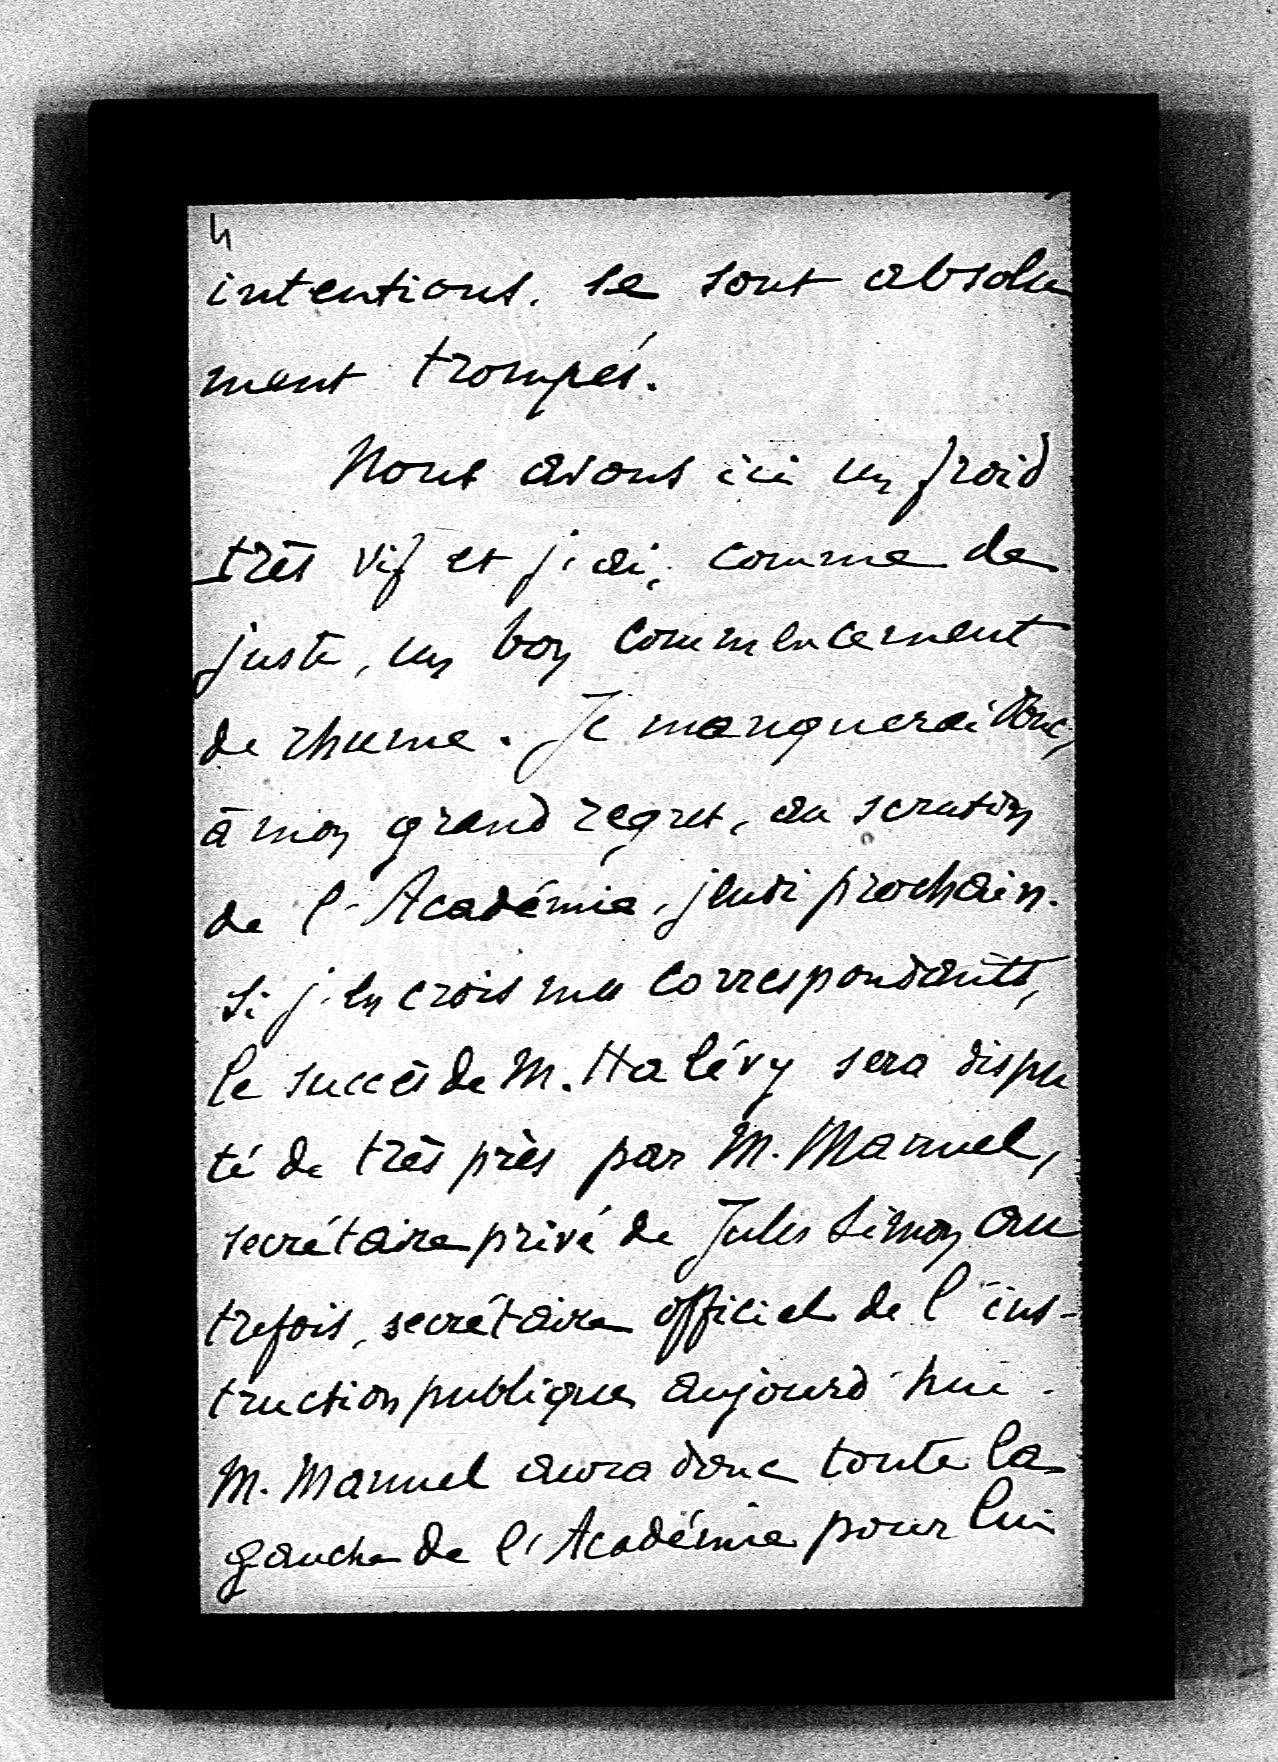 4
intentions, se sont absolu
ment trompés.
Nous avons ici un froid
très vif et j'ai, comme de
juste, un bon commencement
de rhume. Je manquerai donc,
à mon grand regret, au scrutin
de l'Académie, jeudi prochain.
Si j'en crois mes correspondants,
le succès de M. Halévy sera dispu
té de très près par M. Manuel,
secrétaire privé de Jules Simon au
trefois, secrétaire officiel de l'ins-
truction publique aujourd'hui.
M. Manuel aura donc toute la
gauche de l'Académie pour lui